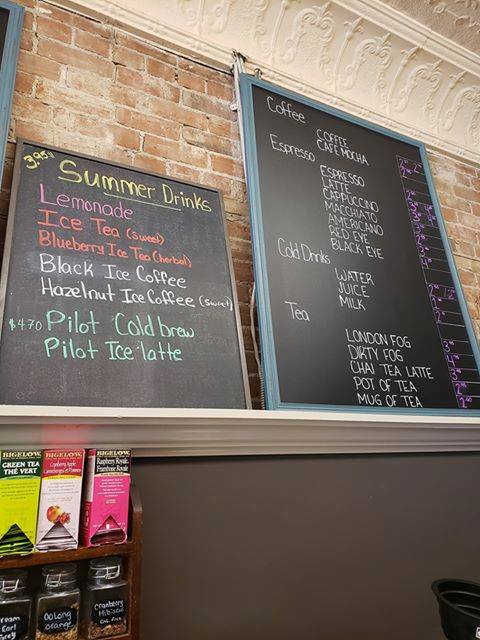 3.95
Summer Drinks
Lemonade
Ice Tea (sweet)
Blueberry Ice Tea (herbal)
Black Ice Coffee
Hazelnut Ice Coffee (sweet)
$4.70 Pilot Cold brew
Pilot Ice latte
Coffee
COFFEE
CAFE MOCHA
Espresso
ESPRESSO
LATTE
CAPPUCCINO
MACCHIATO
AMERICANO
RED EYE
BLACK EYE
Cold Drinks
WATER
JUICE
MILK
Tea
LONDON FOG
DIRTY FOG
CHAI TEA LATTE
POT OF TEA
MUG OF TEA
BIGELOW
GREEN TEA
THÉ VERT
BIGELOW
Cranberry Apple
BIGELOW
Raspberry Royale
Framboise Royale
Cream
Earl
Grey
Oolong
Orange
Cranberry
Hibiscus